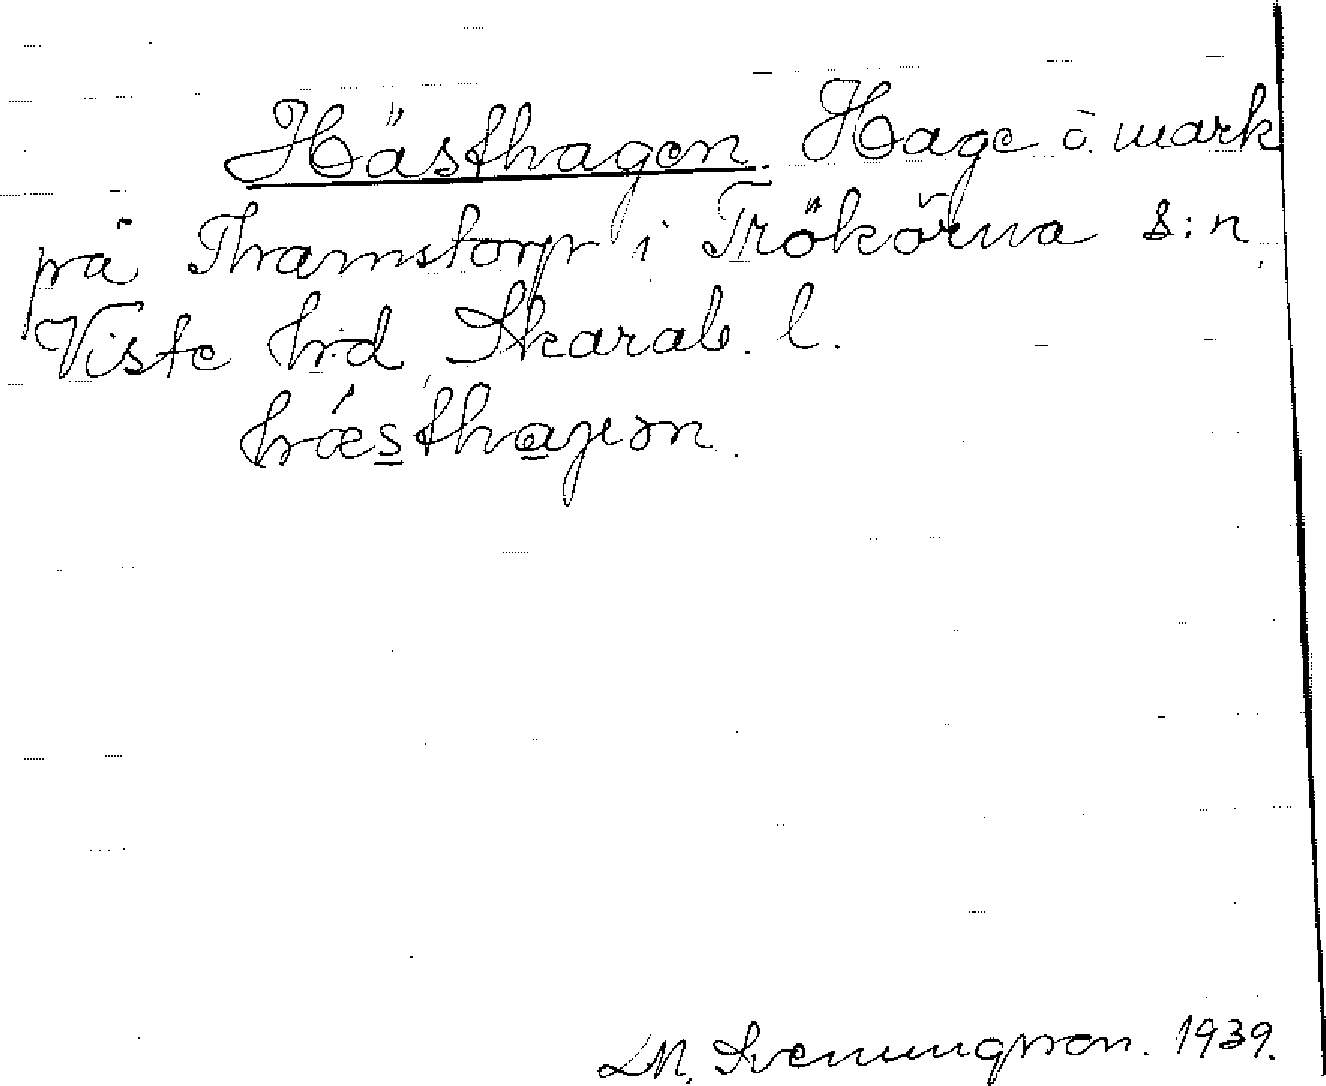 Hästhagen. Hage o. mark
på Thamstorp i Trökörna s:n
Viste hd Skarab. l.
hǽsthaɡen.
M. Svenungsson. 1939.